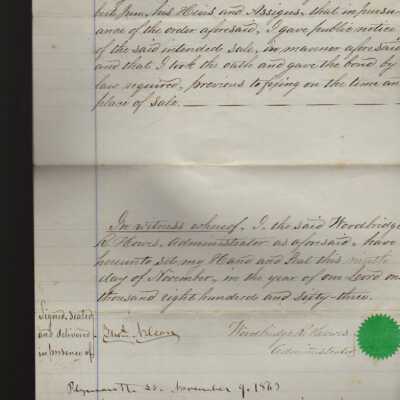 his Heirs and Assigns, that in pursu-
ance of the order aforesaid, I gave public notice
of the said intended sale, in manner aforesaid
and that I took the oath and gave the bond by
law required, previous to fixing on the time an
place of sale.
In witness whereof, I the said Woodbridge
R. Howes, Administrator as aforesaid, have
hereunto set my Hand and Seal this ninth
day of November, in the year of our Lord on
thousand eight hundred and sixty-three.
Signed, sealed
and delivered
in presence of
Woodbridge R. Howes
Administrator
Plymouth ss. November 9. 1863